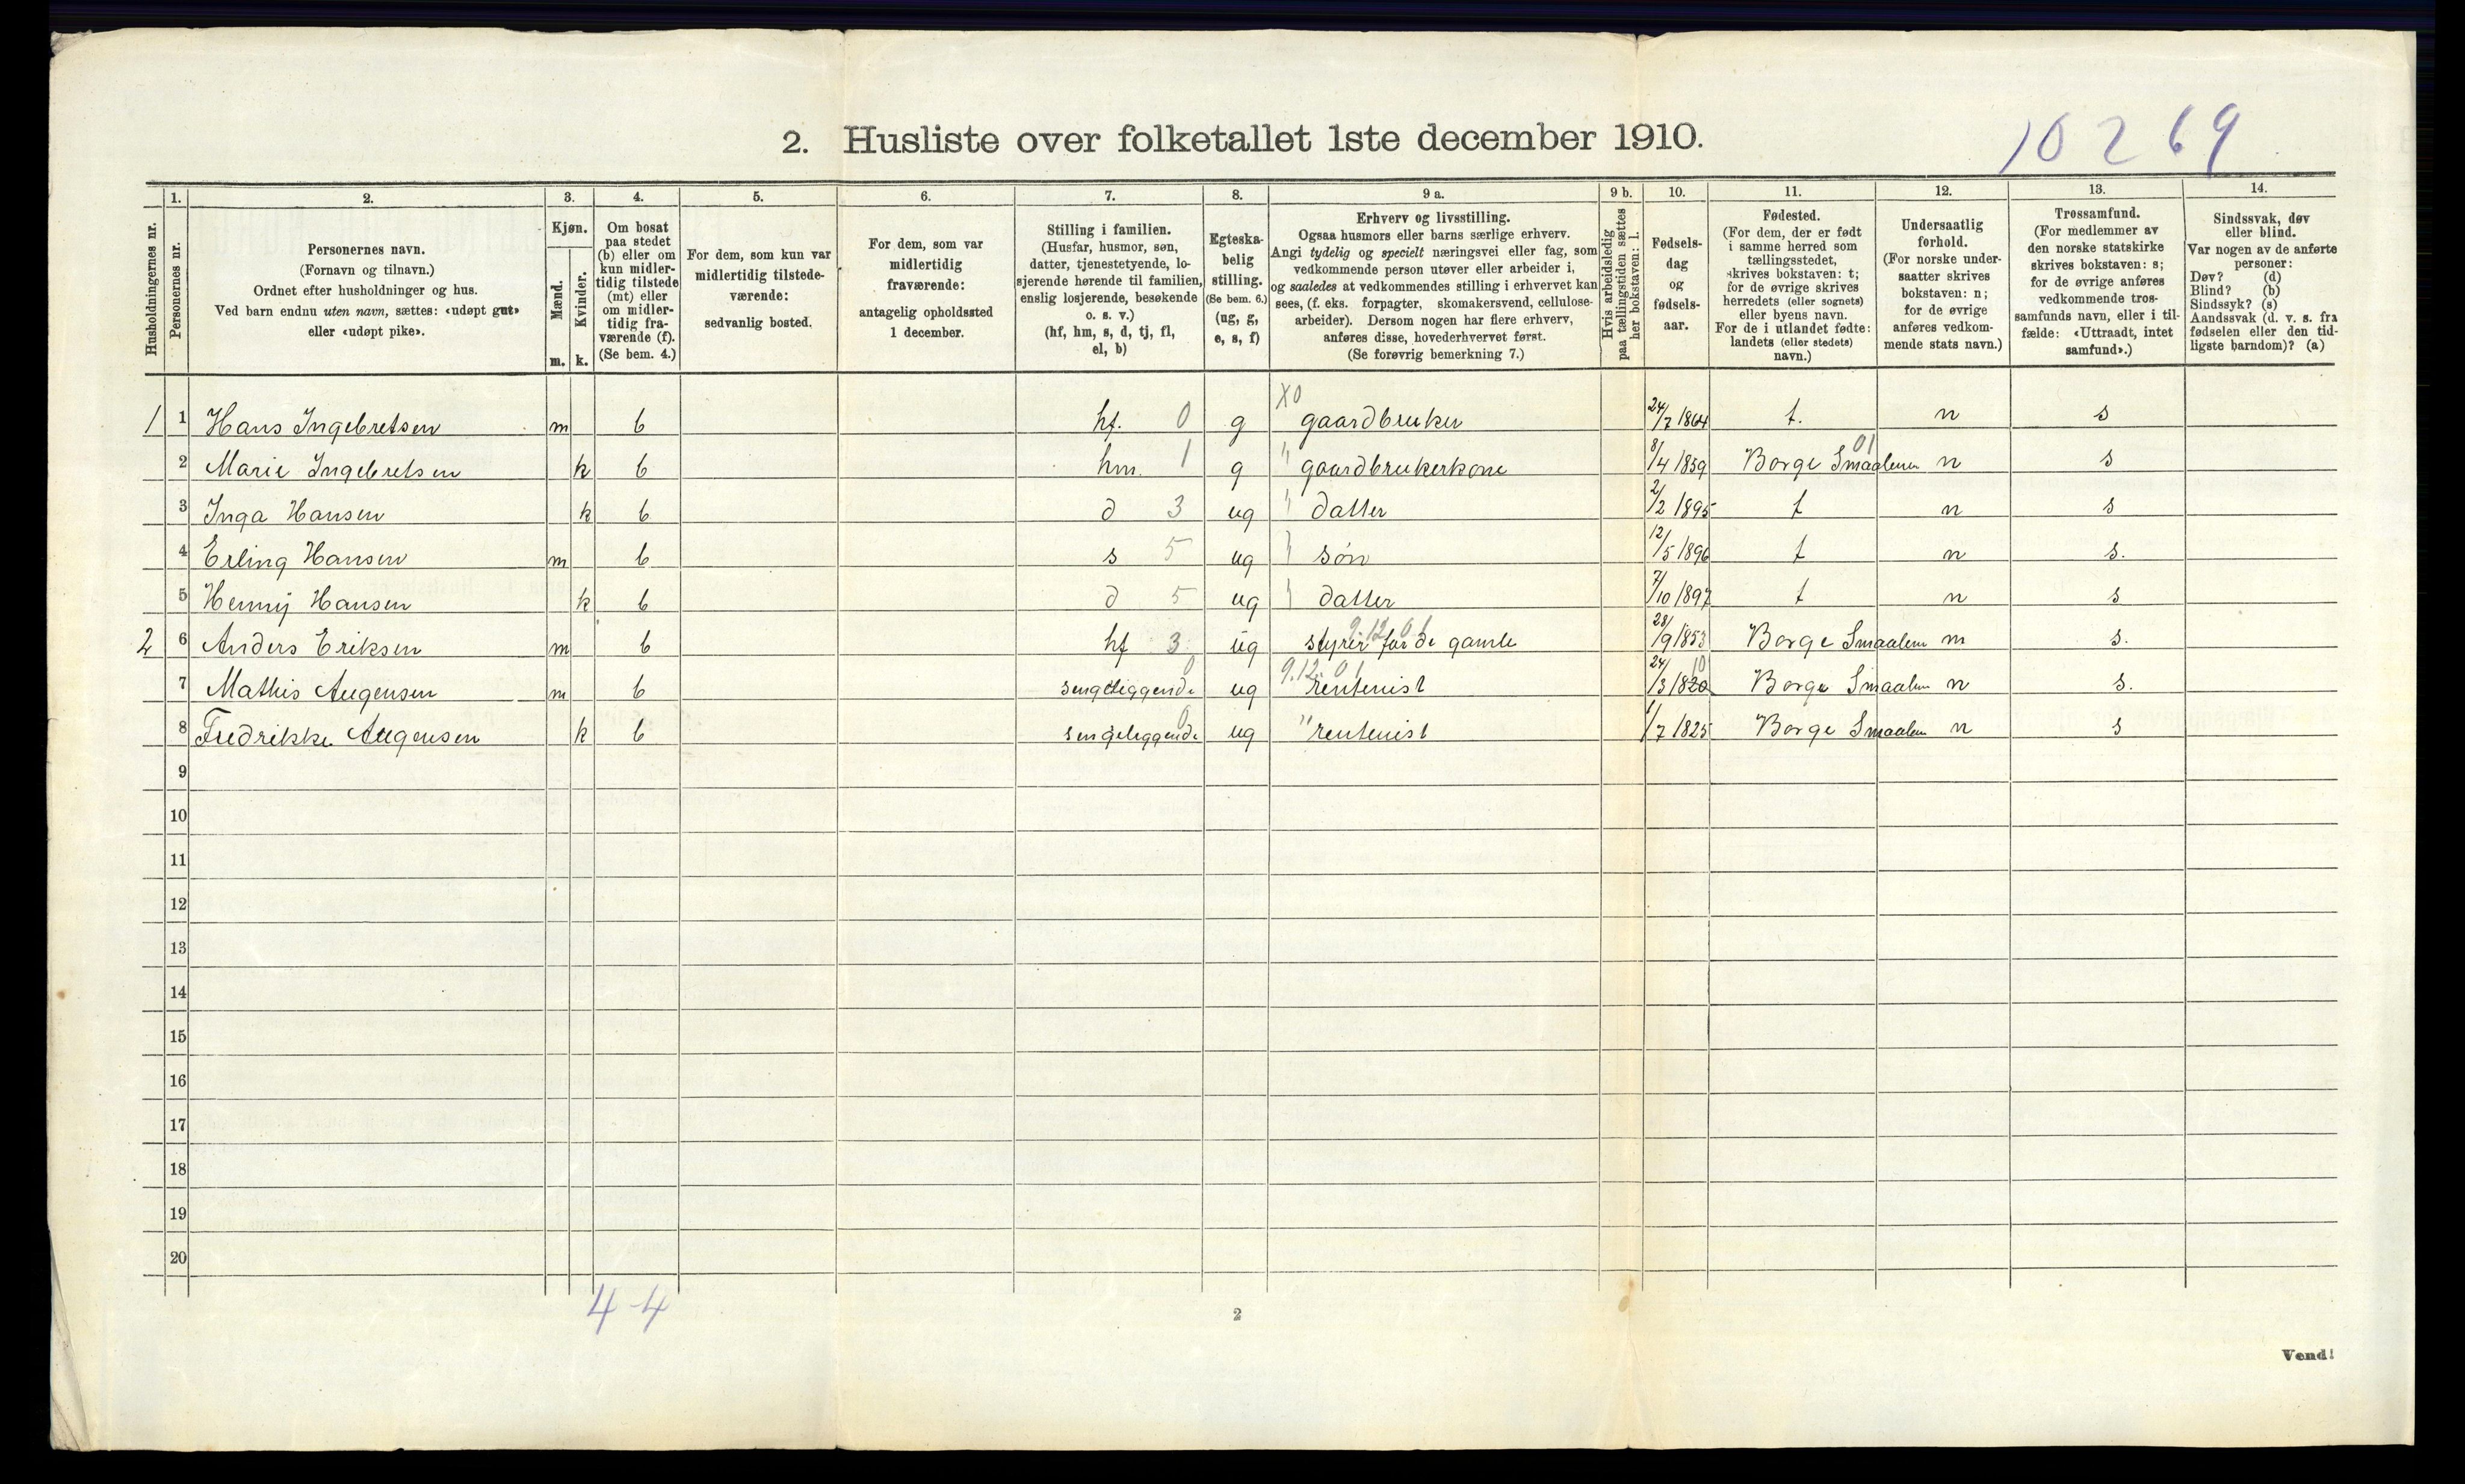 10269
2. Husliste over folketallet 1ste december 1910.
Husholdningernes nr.
1.
Personernes nr.
2.
Personernes navn.
(Fornavn og tilnavn.)
Ordnet efter husholdninger og hus.
Ved barn endnu uten navn, sættes: «udøpt gut»
eller «udøpt pike».
3.
Kjøn.
Mænd.
m.
Kvinder.
k.
4.
Om bosat
paa stedet
(b) eller om
kun midler-
tidig tilstede
(mt) eller
om midler-
tidig fra-
værende (f).
(Se bem. 4.)
5.
For dem, som kun var
midlertidig tilstede-
værende:
sedvanlig bosted.
6.
For dem, som var
midlertidig
fraværende:
antagelig opholdssted
1 december.
7.
Stilling i familien.
(Husfar, husmor, søn,
datter, tjenestetyende, lo-
sjerende hørende til familien,
enslig losjerende, besøkende
o. s. v.)
(hf, hm, s, d, tj, fl,
el, b)
8.
Egteska-
belig
stilling.
(Se bem. 6.)
(ug, g,
e, s, f)
9 a.
Erhverv og livsstilling.
Ogsaa husmors eller barns særlige erhverv.
Angi tydelig og specielt næringsvei eller fag, som
vedkommende person utøver eller arbeider i,
og saaledes at vedkommendes stilling i erhvervet kan
sees, (f. eks. forpagter, skomakersvend, cellulose-
arbeider). Dersom nogen har flere erhverv,
anføres disse, hovederhvervet først.
(Se forøvrig bemerkning 7.)
9 b.
Hvis arbeidsledig
paa tællingstiden sættes
her bokstaven: l.
10.
Fødsels-
dag
og
fødsels-
aar.
11.
Fødested.
(For dem, der er født
i samme herred som
tællingsstedet,
skrives bokstaven: t;
for de øvrige skrives
herredets (eller sognets)
eller byens navn.
For de i utlandet fødte:
landets (eller stedets)
navn.)
12.
Undersaatlig
forhold.
(For norske under-
saatter skrives
bokstaven: n;
for de øvrige
anføres vedkom-
mende stats navn.)
13.
Trossamfund.
(For medlemmer av
den norske statskirke
skrives bokstaven: s;
for de øvrige anføres
vedkommende tros-
samfunds navn, eller i til-
fælde: «Uttraadt, intet
samfund».)
14.
Sindssvak, døv
eller blind.
Var nogen av de anførte
personer:
Døv? (d)
Blind? (b)
Sindssyk? (s)
Aandssvak (d. v. s. fra
fødselen eller den tid-
ligste barndom)? (a)
X0
1 1 Hans Ingebretsen m b hf. 0 g gaardbruker 24/7 1864 t. n s
01
2 Marie Ingebretsen k b hm. 1 g " gaardbrukerkone 8/4 1859 Borge Smaalenen n s
3 Inga Hansen k b d 3 ug " datter 2/2 1895 t n s
4 Erling Hansen m b s 5 ug " søn 12/5 1896 t n s.
5 Henny Hansen k b d 5 ug " datter 7/10 1897 t n s
9.12 01
2 6 Anders Eriksen m b hf 3 ug styrer for de gamle 28/9 1853 Borge Smaalenen n s.
0 9.12. 01 10
7 Mathis Augensen m b sengeliggende ug rentenist 24/3 1820 Borge Smaalenen n s.
0
8 Fredrikke Augensen k b sengeleggende ug " rentenist 1/7 1825 Borge Smaalenen n s
9
10
11
12
13
14
15
16
17
18
19
20
4-4
2
Vend!